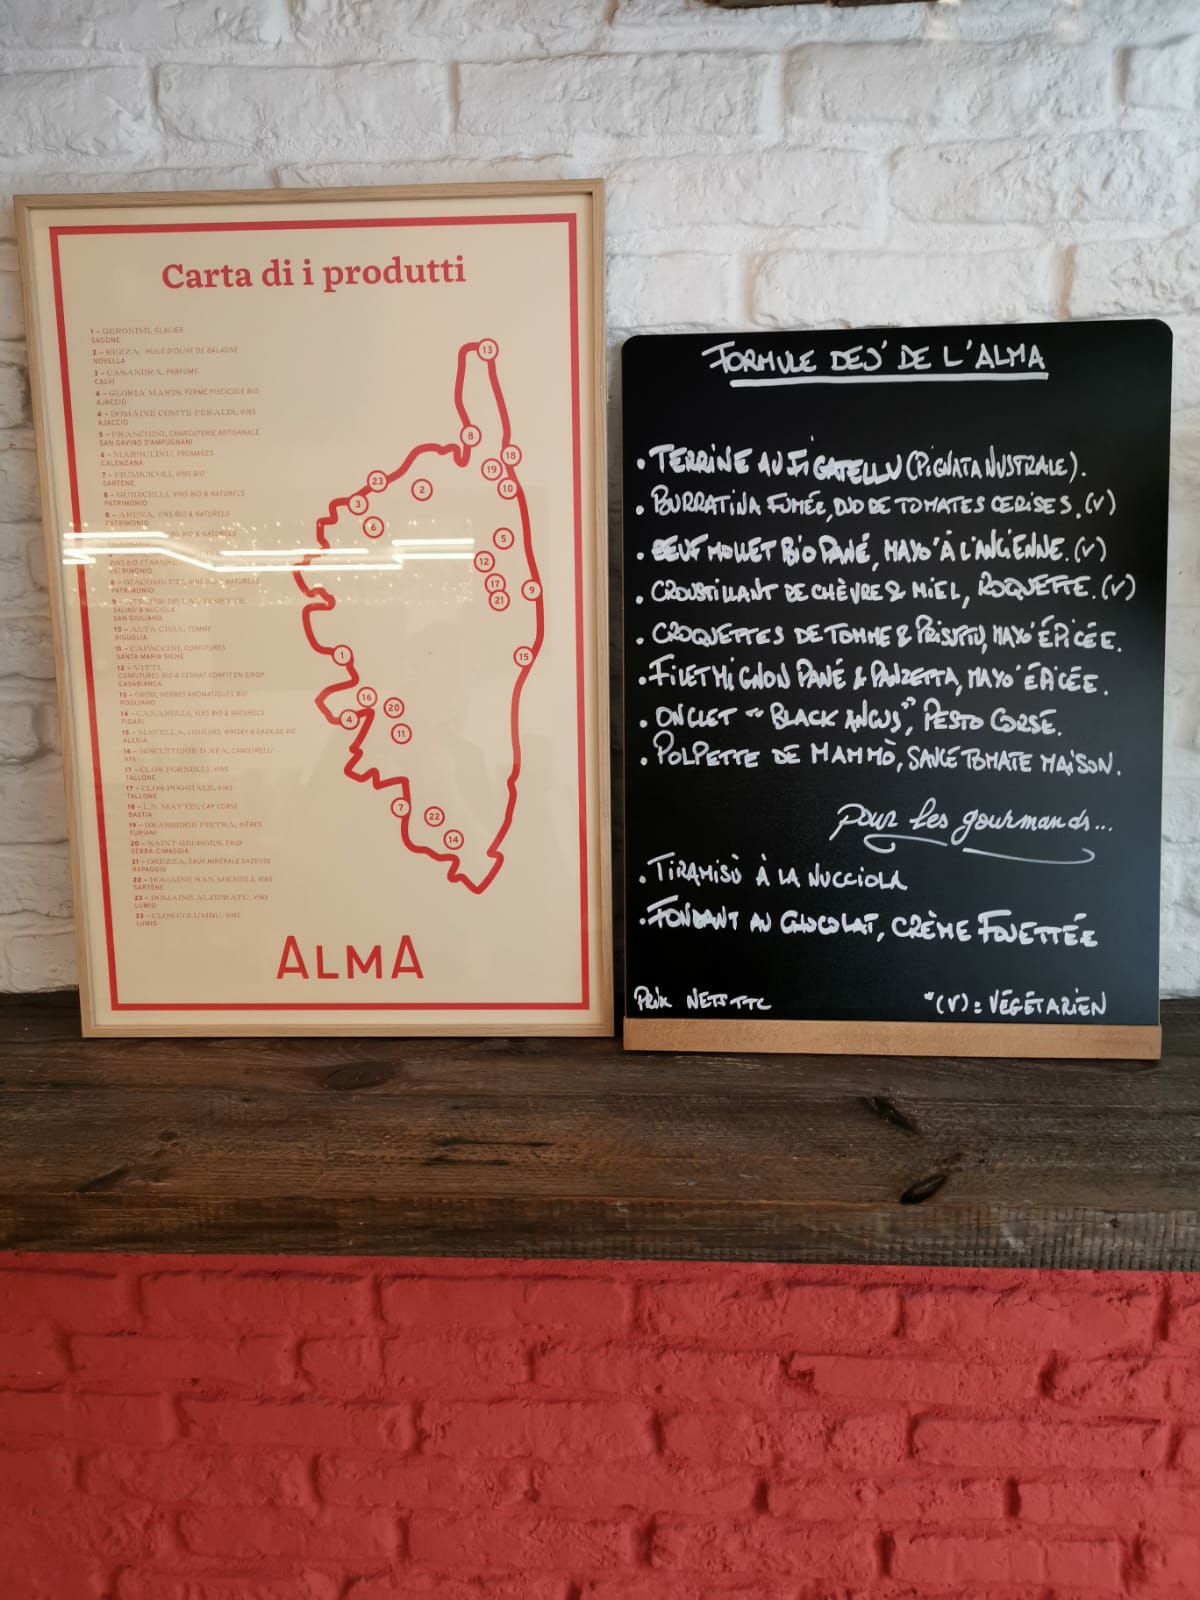 Carta di i produtti
1 – GERONIMI, GLACIER
SAGONE
2 – REZZA, HUILE D'OLIVE DE BALAGNE
NOVELLA
3 – CASANERA, PARFUMS
CALVI
4 – GLORIA MARIS, FERME PISCICOLE BIO
AJACCIO
4 – DOMAINE COMTE PERALDI, VINS
AJACCIO
5 – FRANCHINI, CHARCUTERIE ARTISANALE
SAN GAVINO D'AMPUGNANI
6 – MARSULINU, FROMAGES
CALENZANA
7 – FIUMICICOLI, VINS BIO
SARTÈNE
8 – GUIDICELLI, VINS BIO & NATURELS
PATRIMONIO
8 – ARENA, VINS BIO & NATURELS
PATRIMONIO
VINS BIO & NATURELS
VINS BIO ET NATURELS
PATRIMONIO
8 – GIACOMETTI, VINS BIO & NATURELS
PATRIMONIO
9 –
SALINU & NUCIOLA
SAN GIULIANO
10 – ALTA CIMA, TOMME
BIGUGLIA
11 – CAPACCINI, CONFITURES
SANTA MARIA SICHÉ
12 – VITTI
CONFITURES BIO & CÉDRAT CONFIT EN SIROP
CASABIANCA
13 – ORSI, HERBES AROMATIQUES BIO
ROGLIANO
14 – CANARELLI, VINS BIO & NATURELS
FIGARI
15 – MAVELLA, LIQUEURS, WHISKY & EAUX DE VIE
ALERIA
16 – BISCUITERIE D'AFA, CANISTRELLI
AFA
17 – CLOS FORNELLI, VINS
TALLONE
17 – CLOS POGGIALE, VINS
TALLONE
18 – L.N. MATTEI, CAP CORSE
BASTIA
19 – BRASSERIE PIETRA, BIÈRES
FURIANI
20 – SAINT GEORGES, EAUX
SERRA-CIMAGGIA
21 – OREZZA, EAUX MINÉRALE GAZEUSE
RAPAGGIO
22 – DOMAINE SAN MICHELI, VINS
SARTÈNE
23 – DOMAINE ALZIPRATU, VINS
LUMIO
23 – CLOS COLUMBU, VINS
LUMIO
13
8
18
19
10
23
2
3
6
5
12
17
21
9
15
1
16
20
4
11
7
22
14
ALMA
FORMULE DEJ' DE L'ALMA
• TERRINE AU FIGATELLU (PIGNATA NUSTRALE).
• BURRATINA FUMÉE, DUO DE TOMATES CERISES. (V)
• OEUF MOLLET BIO PANÉ, MAYO' À L'ANCIENNE. (V)
• CROUSTILLANT DE CHÈVRE & MIEL, ROQUETTE. (V)
• CROQUETTES DE TOMME & PRISUTTU, MAYO' ÉPICÉE.
• FILET MIGNON PANÉ & PANZETTA, MAYO' ÉPICÉE.
• ONGLET "BLACK ANGUS", PESTO CORSE.
• POLPETTE DE MAMMÒ, SAUCE TOMATE MAISON.
Pour les gourmands...
• TIRAMISÙ À LA NUCCIOLA
• FONDANT AU CHOCOLAT, CRÈME FOUETTÉE
PRIX NETS TTC
*(V) : VÉGÉTARIEN